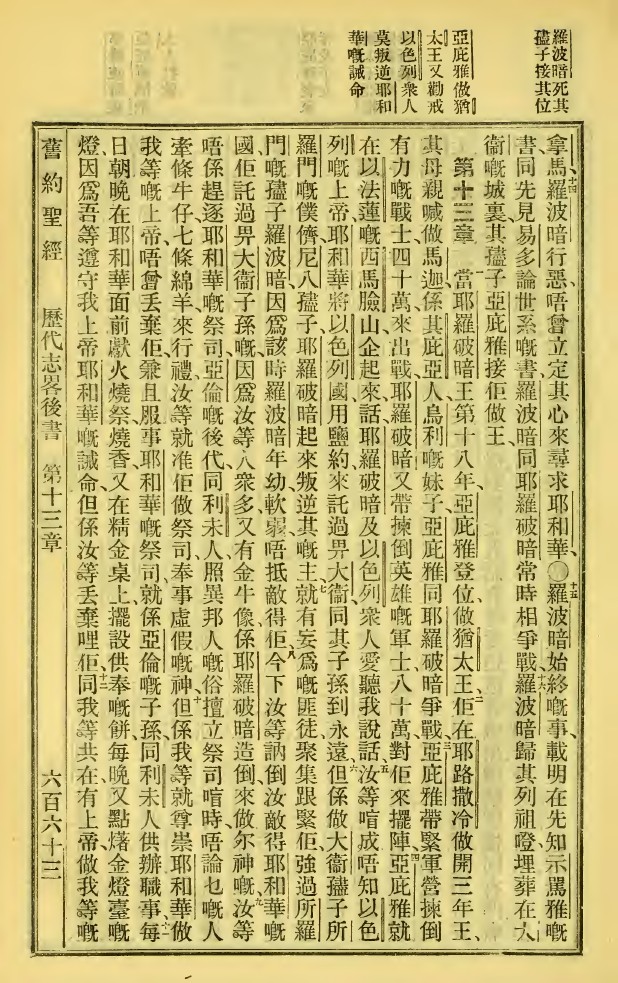 羅波暗死其
孻子接其位
亞庇雅做猶
太王又勸戒
以色列衆人
莫叛逆耶和
華嘅誡命
十四
拿馬羅波暗行惡、唔曾立定其心來尋求耶和華、○十五羅波暗始終嘅事、載明在先知示罵雅嘅
書、同先見易多論世系嘅書、羅波暗同耶羅破暗常時相爭戰、十六羅波暗歸其列祖、嶝埋葬在大
衞嘅城裏、其孻子亞庇雅接佢做王、
第十三章 一當耶羅破暗王第十八年、亞庇雅登位做猶太王、二佢在耶路撒冷做開三年王、
其母親喊做馬迦、係其庇亞人烏利嘅妹子、亞庇雅同耶羅破暗爭戰、三亞庇雅帶緊軍營揀倒
有力嘅戰士四十萬來出戰、耶羅破暗又帶揀倒英雄嘅軍士八十萬、對佢來擺陣、四亞庇雅就
在以法蓮嘅西馬臉山企起來話、耶羅破暗及以色列衆人、愛聽我說話、五汝等喑成唔知以色
列嘅上帝耶和華、將以色列國用鹽約來託過畀大衞同其子孫到永遠、六但係做大衞孻子所
羅門嘅僕儕、尼八孻子耶羅破暗起來叛逆其嘅主、七就有妄爲嘅匪徒聚集跟緊佢、強過所羅
門嘅孻子羅波暗、因爲該時羅波暗年幼軟弱、唔抵敵得佢、八今下汝等訥倒汝敵得耶和華嘅
國、佢託過畀大衞子孫嘅、因爲汝等人衆多、又有金牛像、係耶羅破暗造倒來做尔神嘅、九汝等
唔係趕逐耶和華嘅祭司、亞倫嘅後代、同利未人、照異邦人嘅俗、擅立祭司喑時、唔論乜嘅人
牽條牛仔七條綿羊來行禮、汝等就准佢做祭司、奉事虛假嘅神、十但係我等就尊崇耶和華做
我等嘅上帝、唔曾丟棄佢、兼且服事耶和華嘅祭司、就係亞倫嘅子孫、同利未人供辦職事、十一每
日朝晚在耶和華面前獻火燒祭、燒香、又在精金桌上、擺設供奉嘅餅、每晚又點𤏸金燈臺嘅
燈、因爲吾等遵守我上帝耶和華嘅誡命、但係汝等丟棄哩佢、十二同我等共在有上帝做我等嘅
舊約聖經 歷代志畧後書 第十三章 六百六十三